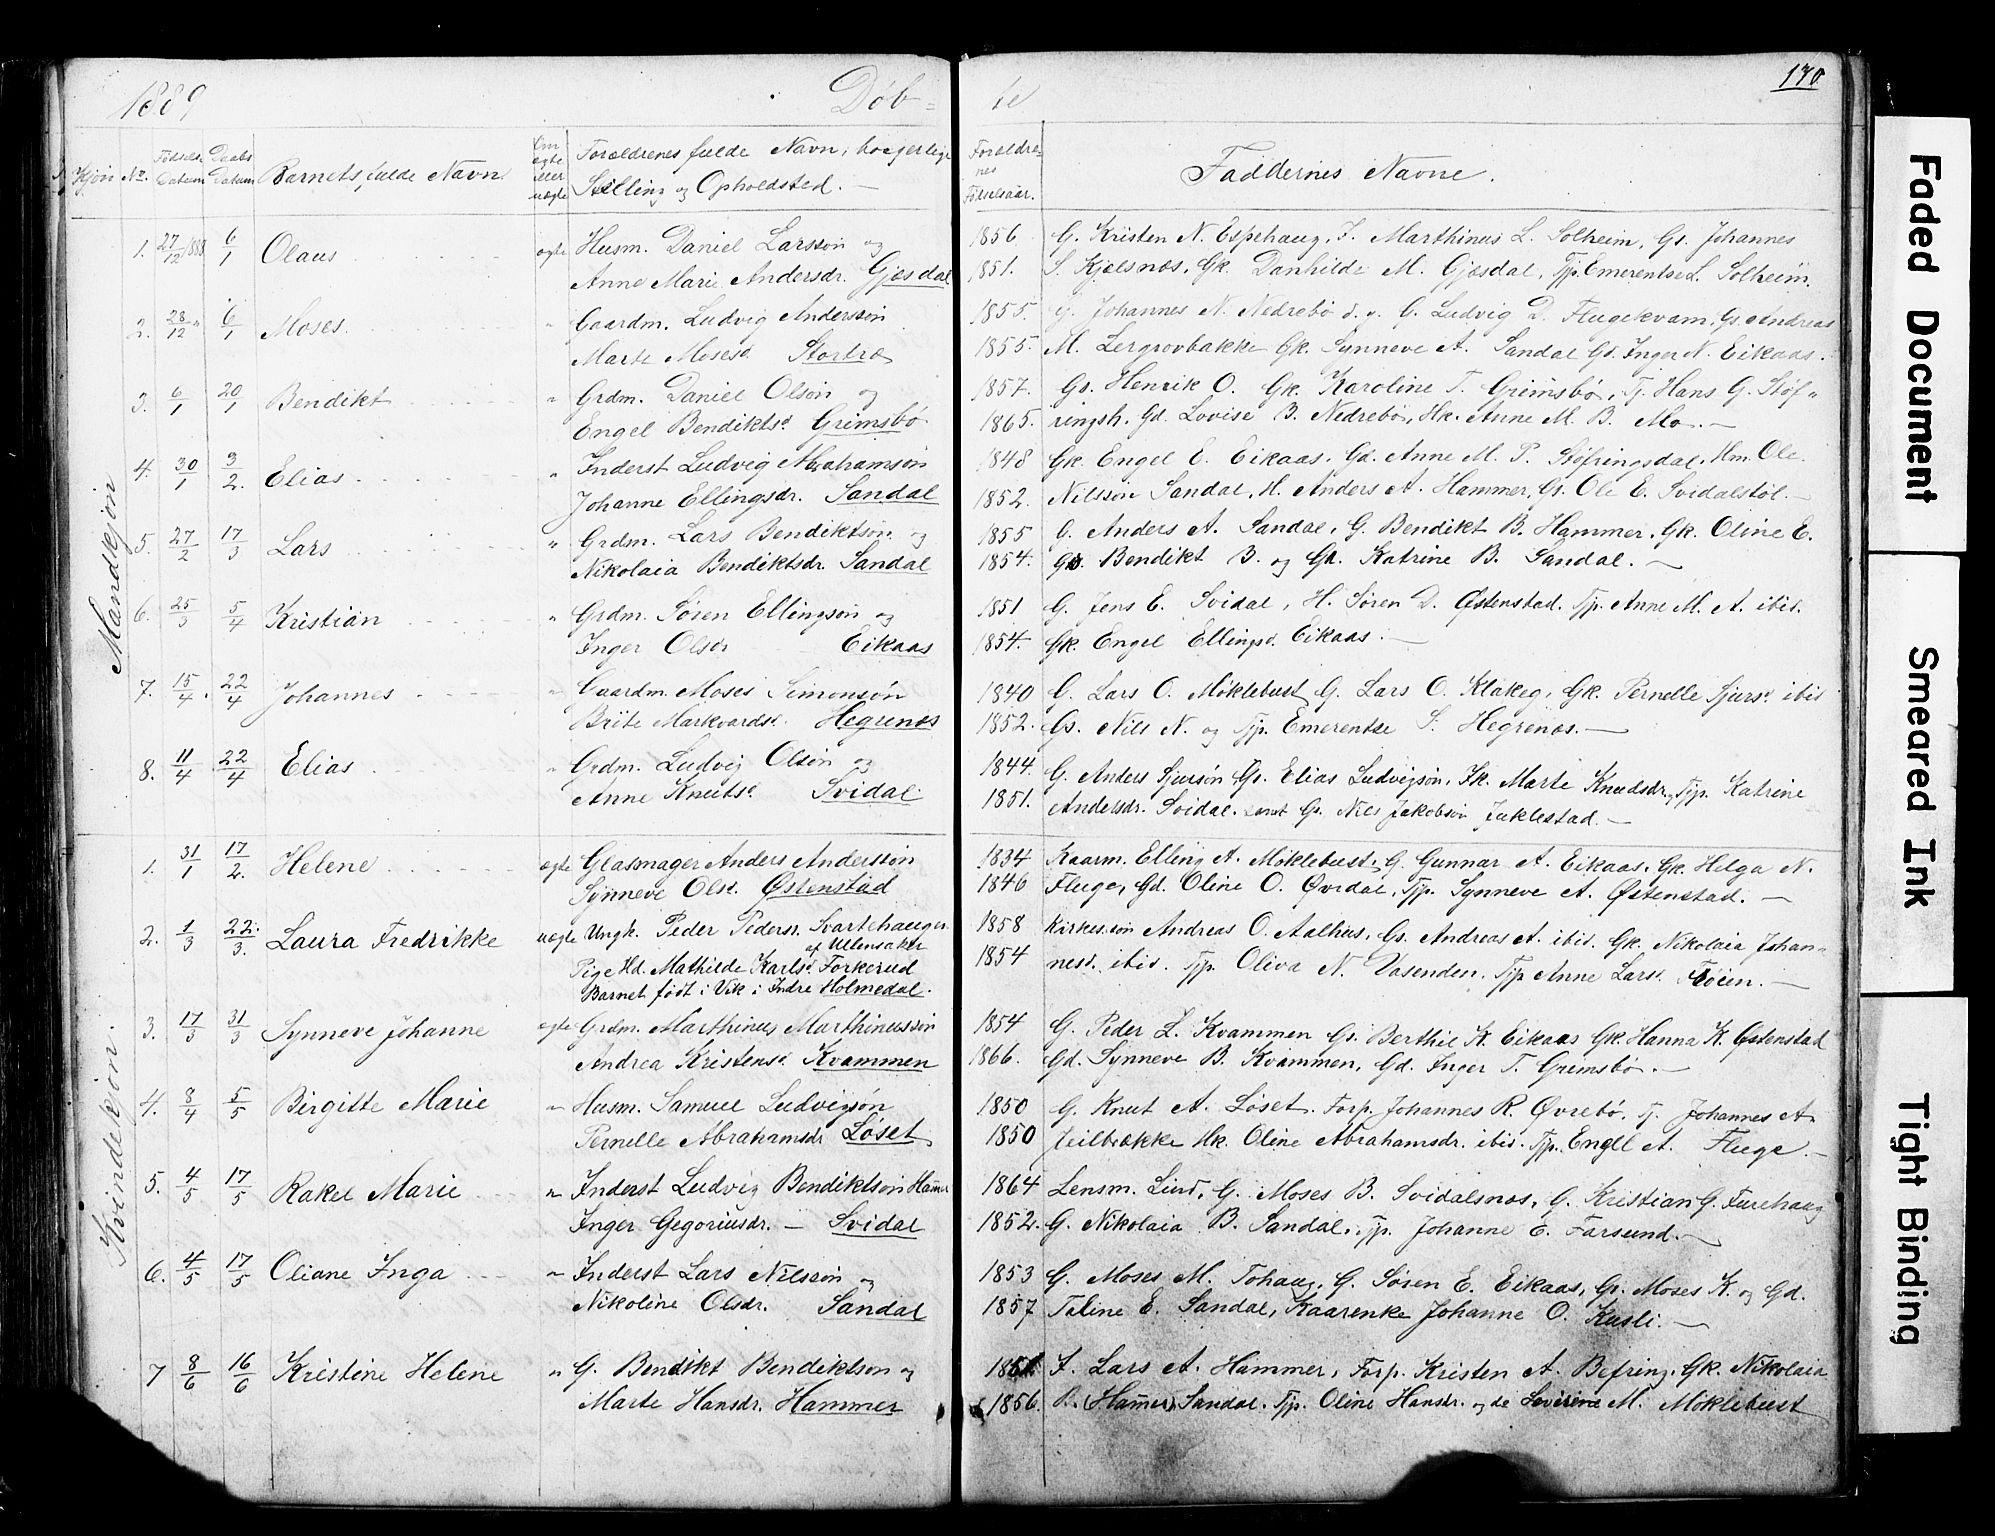 1889 Døb-
te 170
Kjøn No. Fødsels Datum Daabs Datum Barnets fulde Navn Om ægte eller uægte Forældrenes fulde Navn, borgerlige Stilling og Opholdsted. —
Forældre-nes Fødselsaar. Faddernes Navne.
Mandkjøn
1. 27/12 1888 6/1 Olaus ægte Husm. Daniel Larssøn og 1856 G. Kristen N. Espehaug, F. Marthinus L. Solheim, Gs. Johannes
Anne Marie Andersdr. Gjesdal 1851. S. Kjelsnæs, Gk. Danhilde M. Gjesdal, Tjp. Emerentse L. Solheim.
2. 28/12 " 6/1 Moses " Gaardm. Ludvig Anderssøn 1855. G. Johannes N. Nedrebø d. y. G. Ludvig D. Flugekvam, Gs. Andreas
Marte Mosesd. Stortræ 1855. M. Lergrovbakke Gk. Synneve A. Sandal Gd. Inger N. Eikaas.
3. 6/1 20/1 Bendikt " Grdm. Daniel Olsøn og 1857. Gs. Henrik O. Gk. Karoline T. Grimsbø, Tj. Hans G. Støf-
Engel Bendiktsd. Grimsbø 1865. ringsh. Gd. Lovise B. Nedrebø, Hk. Anne M. B. Mo. —
4. 30/1 3/2. Elias " Inderst Ludvig Abrahamsøn 1848 Gk. Engel E. Eikaas, Gd. Anne M. P. Støfringsdal, Hm. Ole
Johanne Ellingsdr. Sandal 1852. Nilssøn Sandal, H. Anders A. Hammer, Gs. Ole E. Svidalstøl. —
5. 27/2 17/3 Lars " Grdm. Lars Bendiktsøn og 1855 G. Anders A. Sandal, G. Bendikt B. Hammer, Gk. Oline E.
Nikolaia Bendiktsdr. Sandal 1854. Gs. Bendikt B. og Gd. Katrine B. Sandal. —
6. 25/3 5/4 Kristian " Grdm. Søren Ellingsøn og 1851 G. Jens E. Svidal, H. Søren D. Østenstad. Tjp. Anne M. A. ibid.
Inger Olsdr Eikaas 1854. Gk. Engel Ellingsd. Eikaas. —
7. 15/4. 22/4 Johannes " Gaardm. Moses Simonsøn 1840 G. Lars O. Møklebust G. Lars O. Klakeg, Gk. Pernelle Sjursd. ibid
Brite Markvardsd. Hegrenæs 1852. Gs. Nils N. og Tjp. Emerentse S. Hegrenæs. —
8. 11/4 22/4 Elias " Grdm. Ludvig Olsøn og 1844. G. Anders Sjursøn Gs. Elias Ludvigsøn, Fk. Marte Knudsdr., Tjp. Katrine
Anne Knutsd. Svidal. 1851. Andersdr. Svidal. samt Gs. Nils Jakobsøn Juklestad. —
Kvindekjøn.
1. 31/1 17/2. Helene ægte Glasmager Anders Anderssøn 1834 Kaarm. Elling A. Møklebust, G. Gunnar A. Eikaas, Gk. Helga N.
Synneve Olsd. Østenstad 1846 Fluge, Gd. Oline O. Øvrdal, Tjp. Synneve A. Østenstad. —
2. 1/3 22/3. Laura Fredrikke uægte Ungk. Peder Pedersn. Svartehaugen 1858 Kirkes. Andreas O. Aalhus, Gs. Andreas A. ibid. Gk. Nikolaia Johan-
af Ulensaker
Pige Hd. Mathilde Karlsd. Forkerud 1854 nesd. ibid. Tjp. Oliva N. Vasenden, Tjp Anne Larsd. Fløien. —
Barnet født i Vik i Indre Holmedal.
3. 17/3 31/3 Synneve Johanne ægte Grdm. Marthinus Marthinussøn 1854 G. Peder L. Kvammen Gs. Berthil K. Eikaas Gk. Hanna K. Østenstad
Andrea Kristensd. Kvammen 1866. Gd. Synneve B. Kvammen, Gd. Inger T. Grimsbø. —
4. 8/4 5/5 Birgitte Marie " Husm. Samuel Ludvigsøn 1850 G. Knut A. Løset. Forp. Johannes R. Øvrebø. Tj. Johannes A
Pernelle Abrahamsdr Løset 1850 Heilbrække Hk. Oline Abrahamsdr. ibid. Tjp. Engel A. Fluge. —
5. 4/5 17/5 Rakel Marie " Inderst Ludvig Bendiktsøn Hamer 1864 Lensm. Lind, G. Moses B. Svidalsnæs, G. Kristian G. Furehaug
Inger Gegoriusdr. — Svidal 1852. G. Nikolaia B. Sandal, Tjp. Johanne E. Farsund. —
6. 4/5 17/5 Oliane Inga " Inderst Lars Nilssøn og 1853 G. Moses M. Tohaug, G. Søren E. Eikaas, Gs. Moses K. og Gd.
Nikoline Olsdr. Sandal 1857 Taline E. Sandal, Kaarenke Johanne O. Kusli. —
7 8/6 16/6 Kristine Helene " G. Bendikt Bendiktsøn og F. Lars A. Hammer, Forp. Kristen A. Befring, Gk. Nikolaia
Marte Hansdr. Hammer 1856. B. (Hamer) Sandal. Tjp. Oline Hansdr. og do Severine M. Møklebust
Faded Document
Smeared Ink
Tight Binding